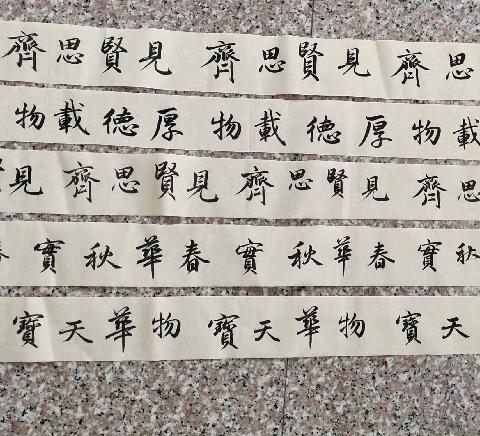 思齊 見賢思齊 見賢思齊
載物 厚德載物 厚德載物
思齊 見賢思齊 見賢思齊 見賢
秋實 春華秋實 春華秋實 春
天寶 物華天寶 物華天寶